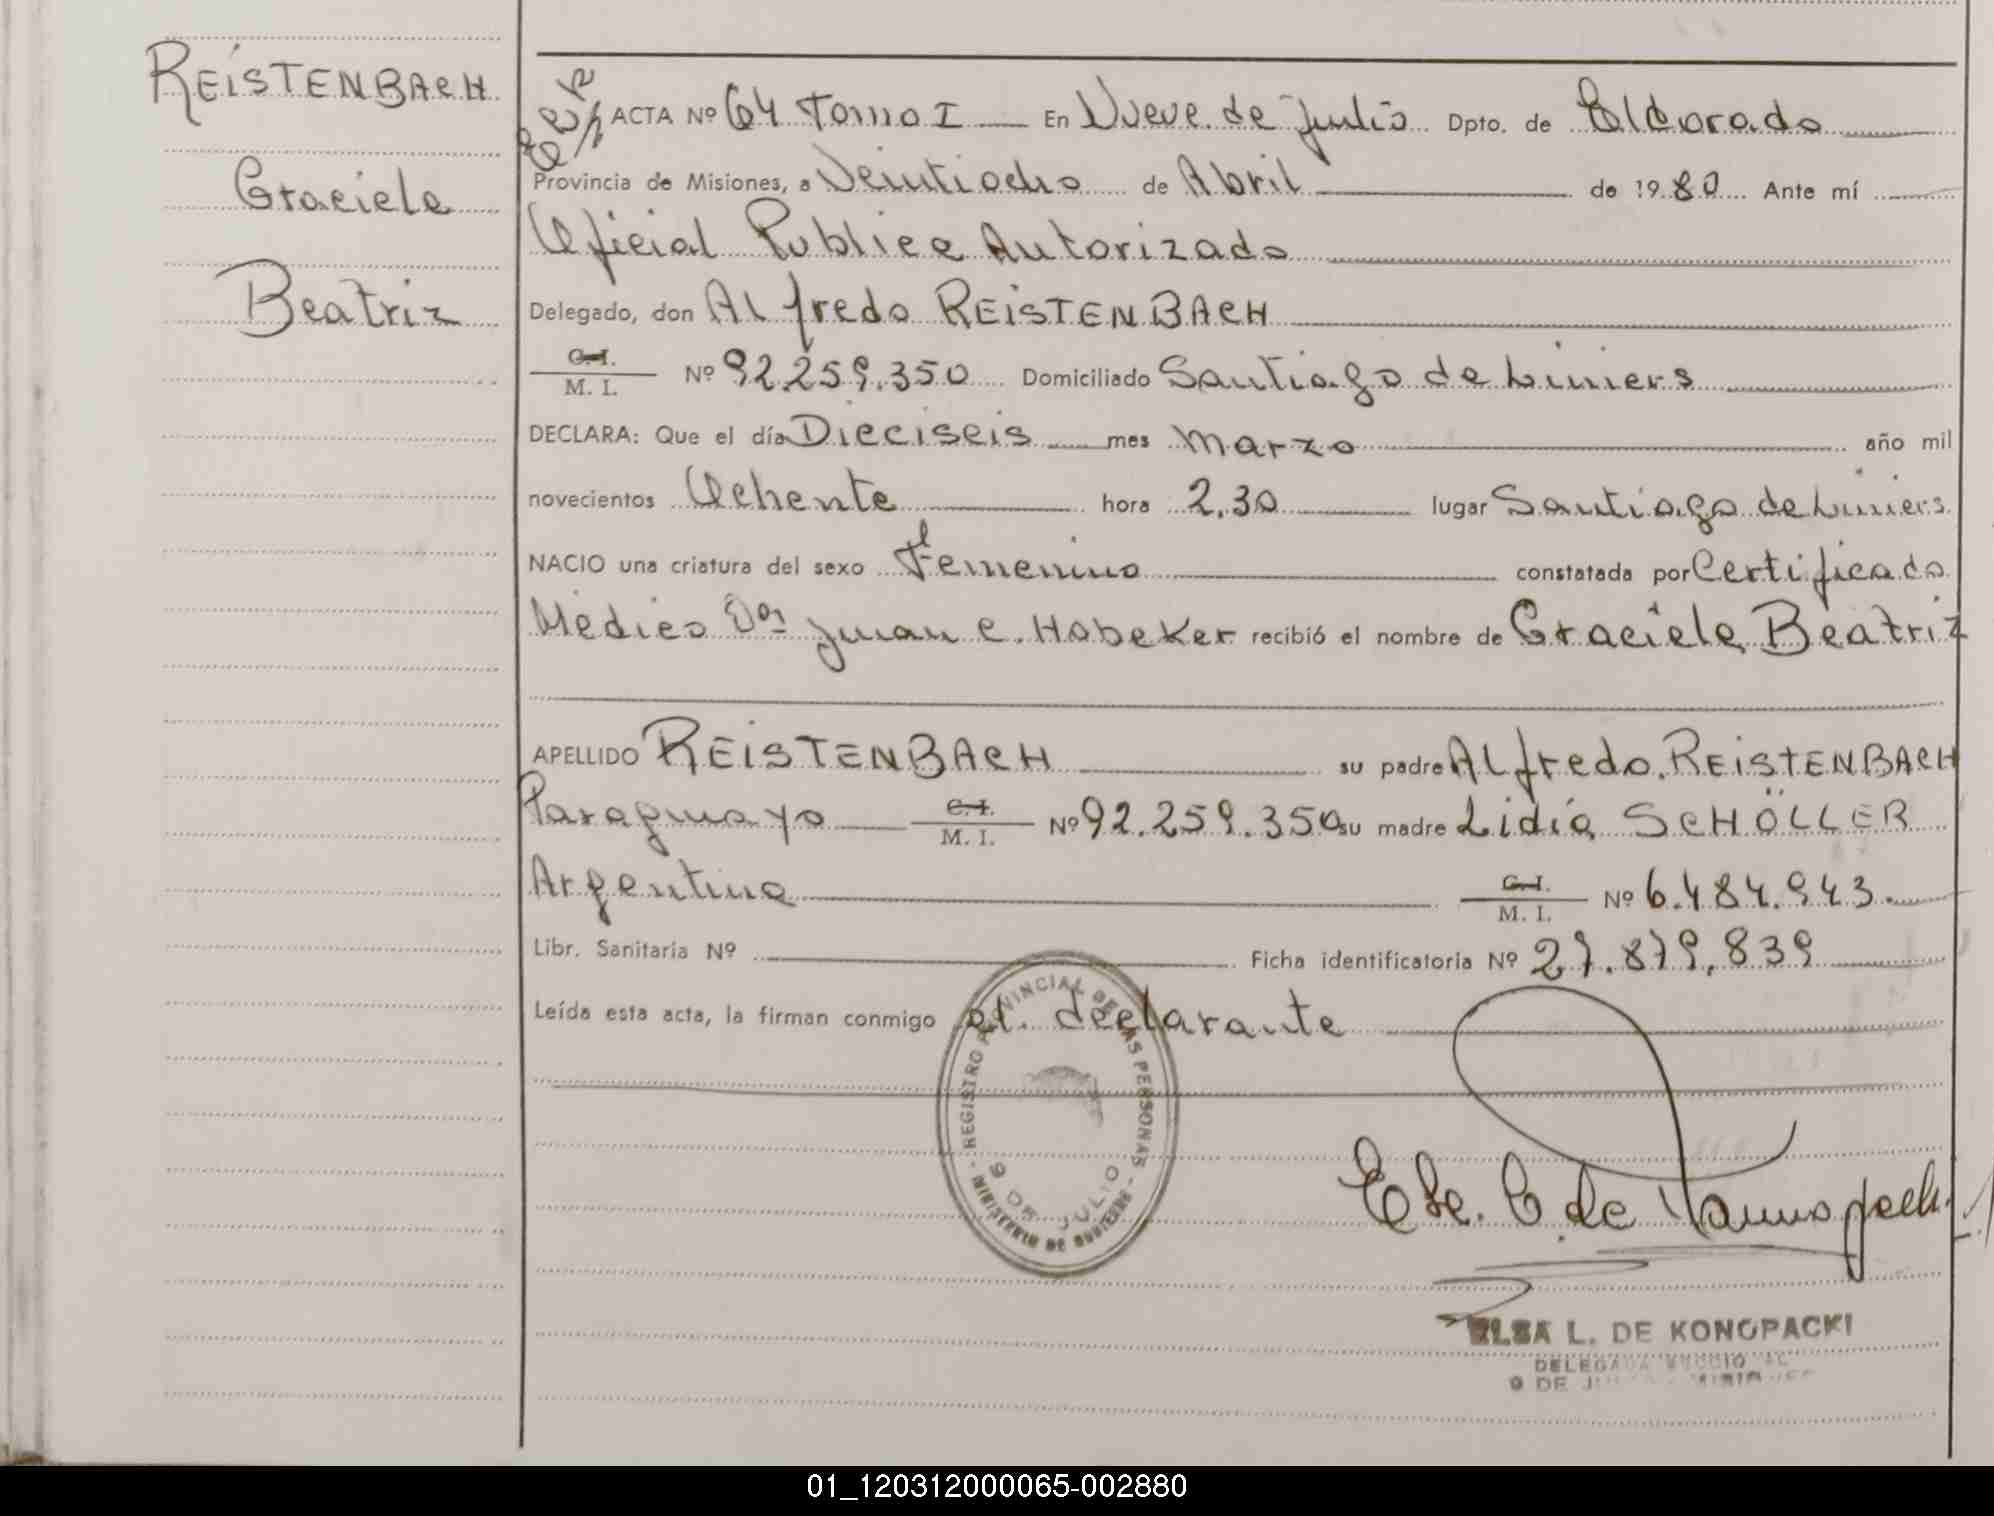 REISTENBACH
Graciela
Beatriz
ACTA Nº 64 Tomo I En Nueve de Julio Dpto. de Eldorado
Provincia de Misiones, a Veintiocho de Abril de 1980 Ante mí
Oficial Publico Autorizado
Delegado, don Alfredo REISTENBACH
C.I. M. I. Nº 92.259.350 Domiciliado Santiago de Liniers
DECLARA: Que el día Dieciseis mes Marzo año mil
novecientos Ochenta hora 2.30 lugar Santiago de Liniers.
NACIO una criatura del sexo Femenino constatada por Certificado
Médico Dor Juan C. Habeker recibió el nombre de Graciela Beatriz
APELLIDO REISTENBACH su padre Alfredo REISTENBACH
Paraguayo C.I. M. I. Nº 92.259.350 su madre Lidia SCHÖLLER
Argentina C.I. M. I. Nº 6.484.943.
Libr. Sanitaria Nº Ficha identificatoria Nº 27.879.839
Leída esta acta, la firman conmigo el declarante
REGISTRO PROVINCIAL DE LAS PERSONAS
9 DE JULIO
MINISTERIO DE GOBIERNO
ELSA L. DE KONOPACKI
DELEGADA
9 DE
01_120312000065-002880